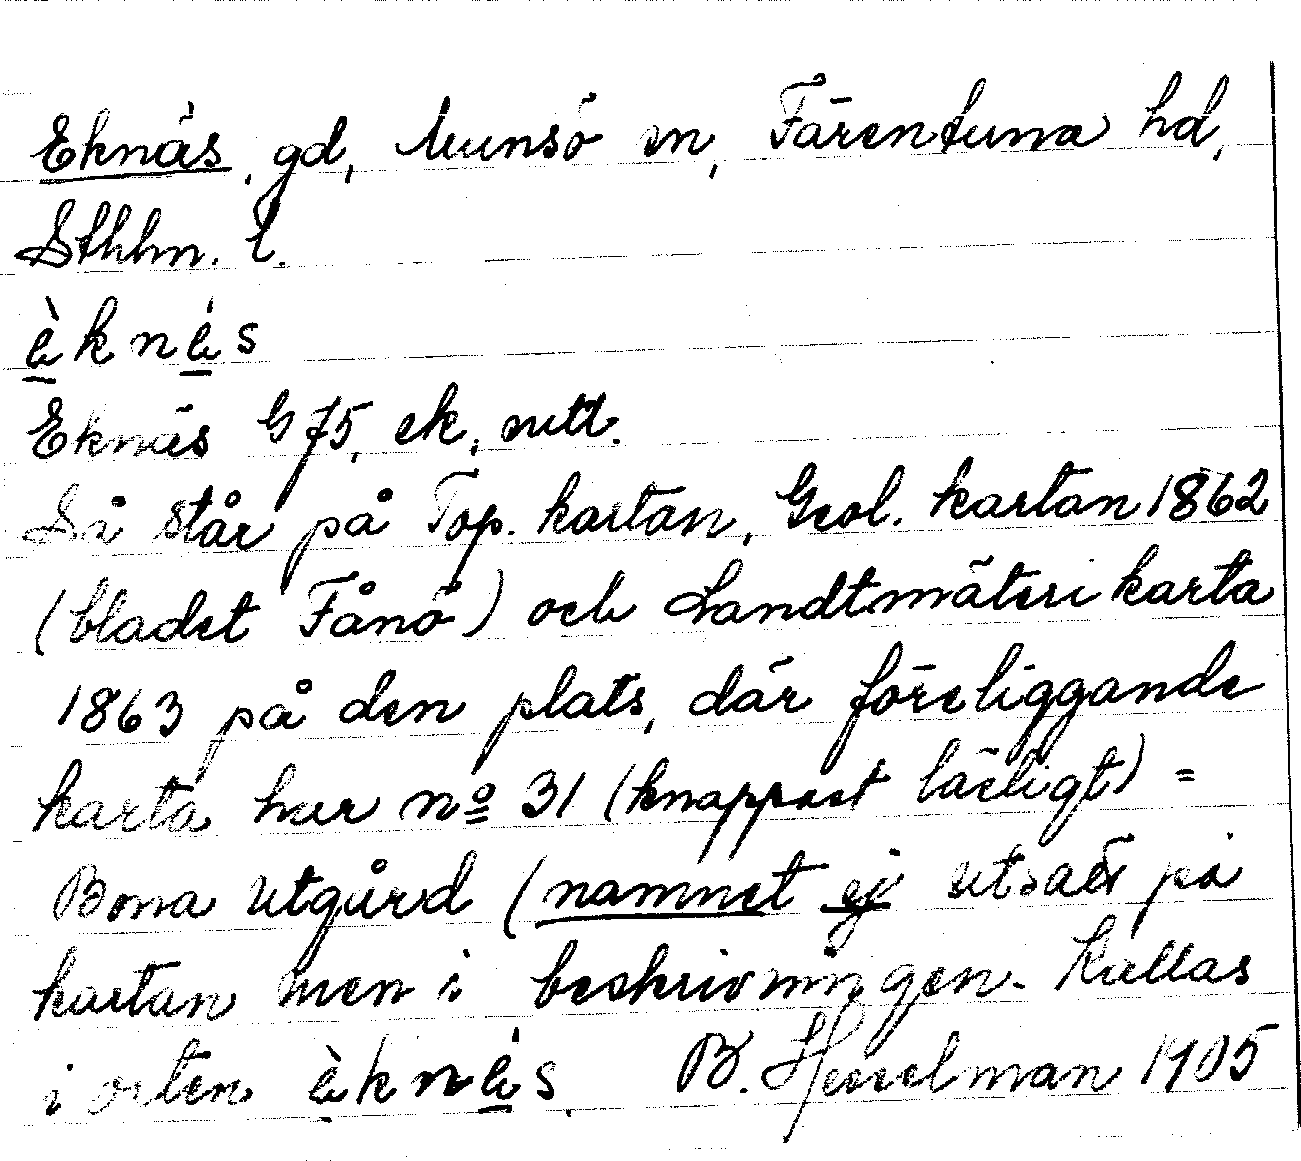 Eknäs, gd, Munsö sn, Färentuna hd,
Sthlm. l.
è̱knè̱s
Eknäs G 75, ek, utt.
Så står på Top. kartan, Geol. kartan 1862
(bladet Fånö) och Landtmäteri karta
1863 på den plats, där föreliggande
karta har nº 31 (knappast läsligt) =
Bona utgård (namnet ej utsatt på
kartan men i beskrivningen. Kallas
i orten è̱knè̱s. B. Hesselman 1905